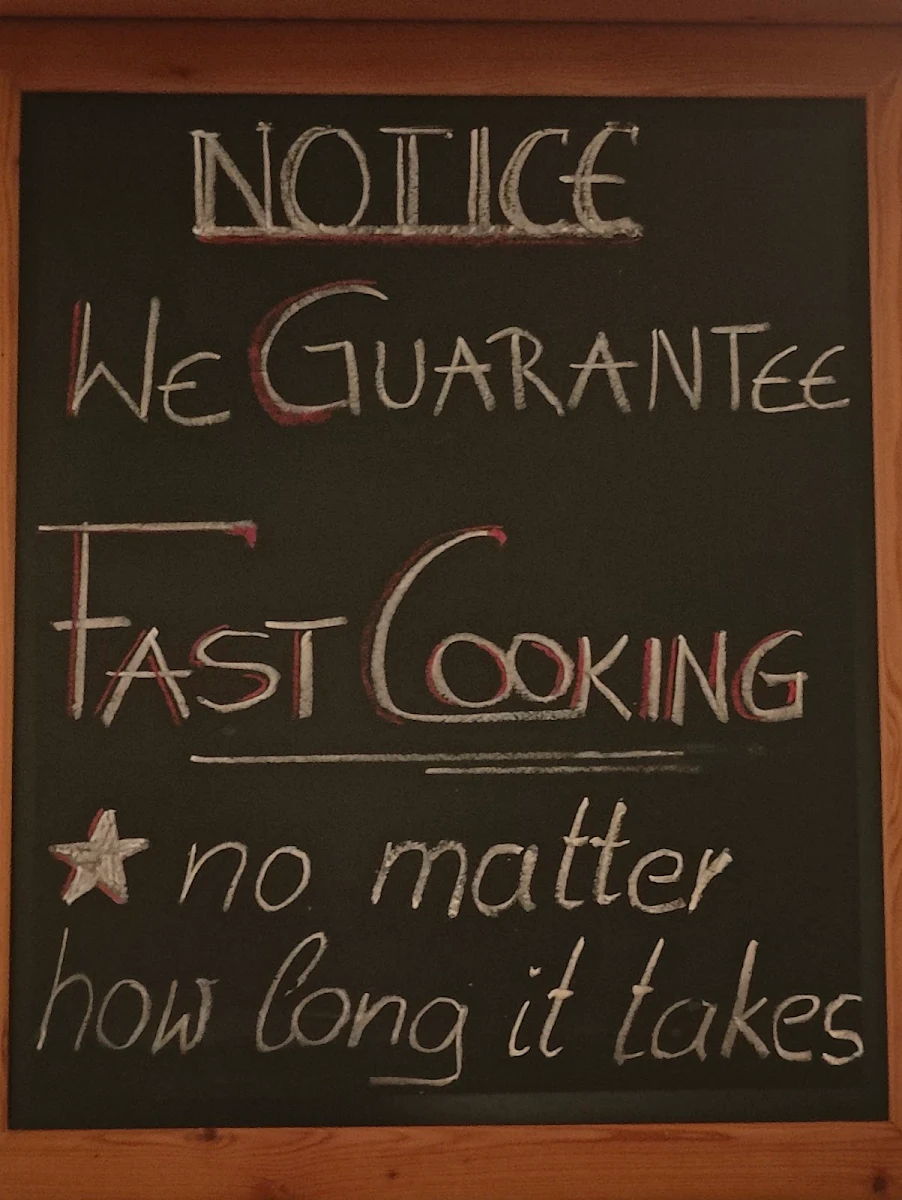 NOTICE
WE GUARANTEE
FAST COOKING
★ no matter
how long it takes